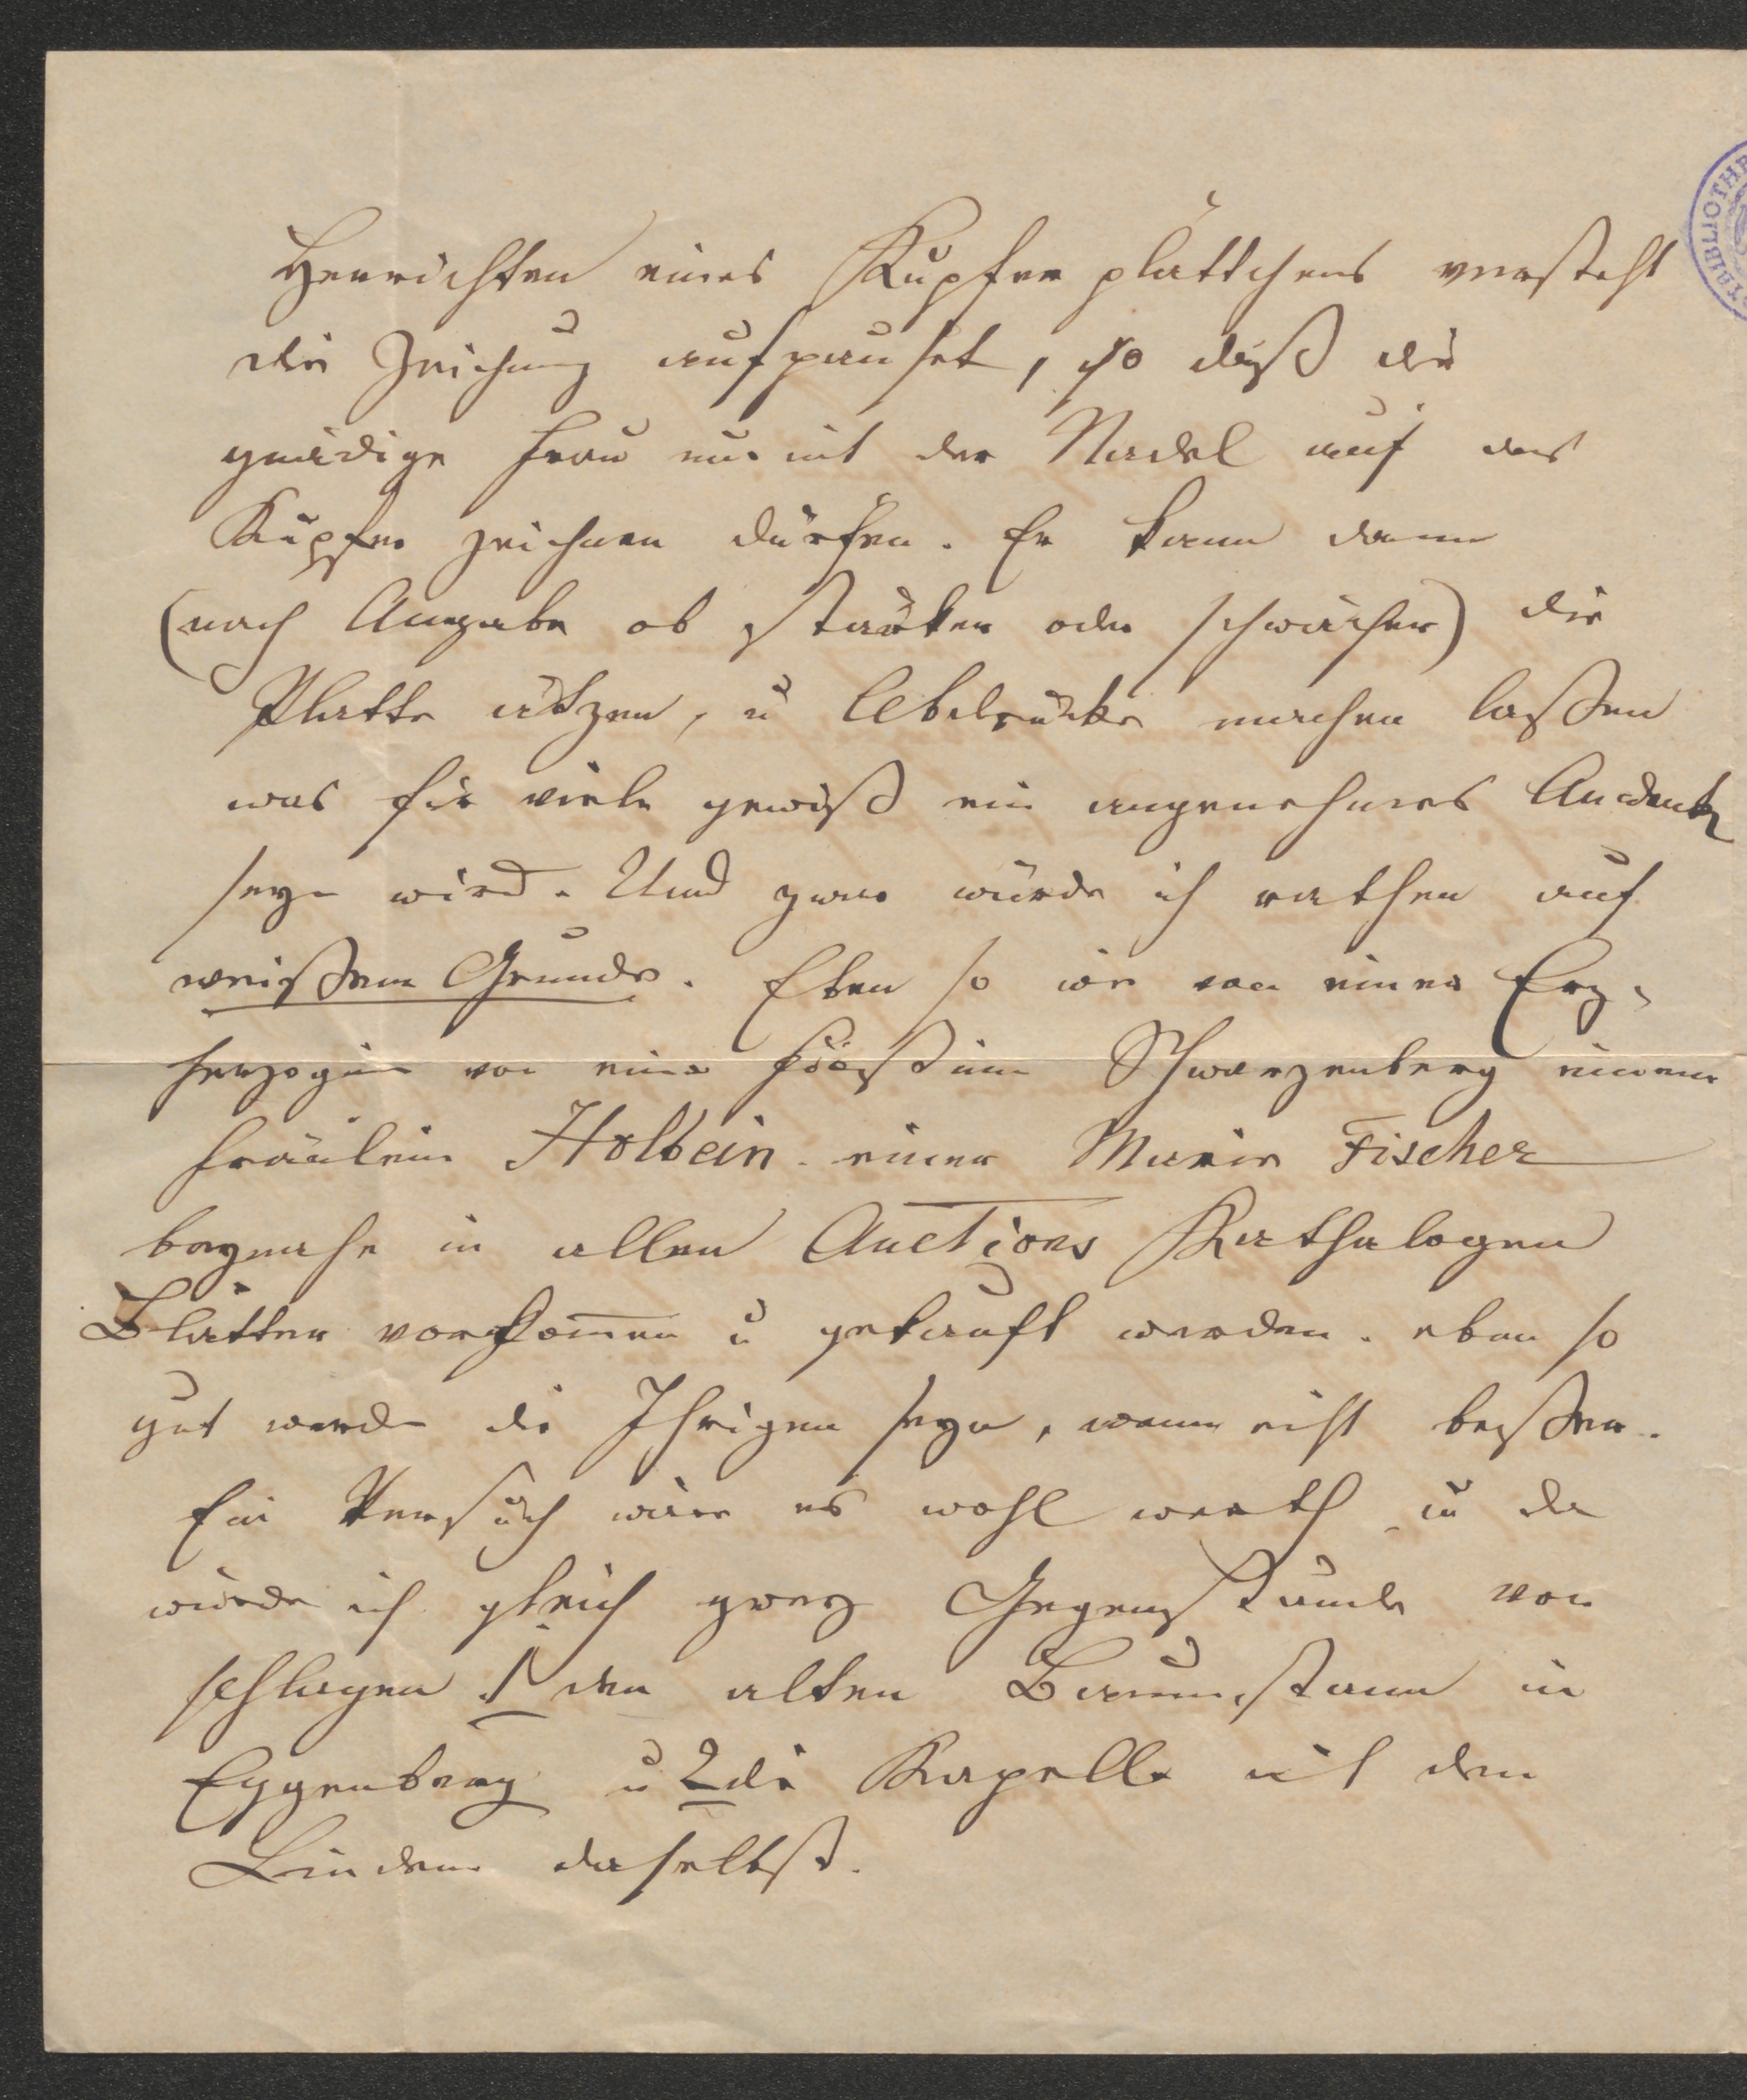 Herrichten eines Kupfer plättchens versteht
die Zeichung aufpauset, so daß die
gnädige Frau nur mit der Nadel auf das
Kupfer zeichnen dürfen. Er kann dann
(nach Angabe ob stärker oder schwächer) die
Platte ätzen, u Abdrücke machen laßen
was für viele gewiß ein angenehmes Andenk
seyn wird. Und zwar würde ich rathen auf
weißem Grunde. Eben so wie von einer Erz-
herzogin von einer Fürstinn Schwarzenberg einem
Fräulein Holbein. einer Marie Fischer
beynahe in allen Auctions Kathalogen
Blätter vorkom̅en u gekauft werden. eben so
gut werden die Ihrigen seyn, wenn nicht beßer.
Ein Versuch wäre es wohl werth u da
würde ich gleich zwey Gegenstände vor
schlagen 1 den alten Baumstam in
Eggenberg u 2 die Kapelle mit den
Linden daselbst.